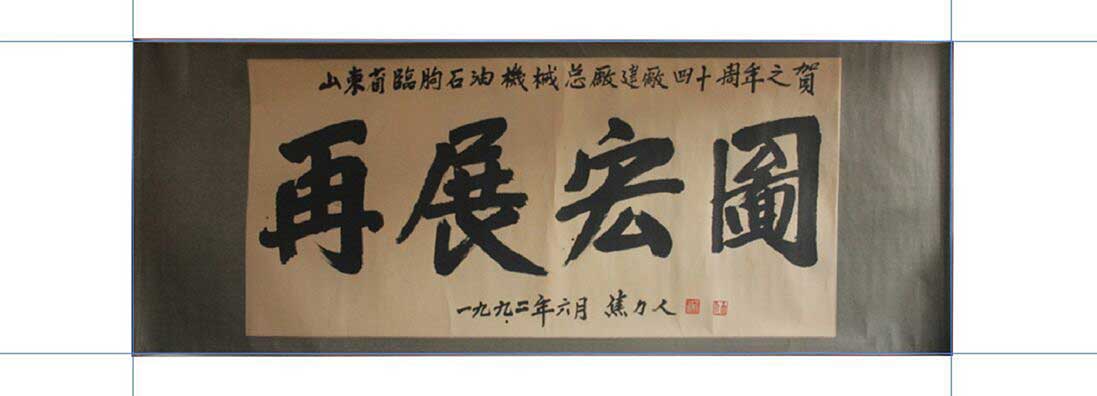 山東省臨朐石油機械总廠建廠四十周年之賀
再展宏圖
一九九二年六月 焦力人